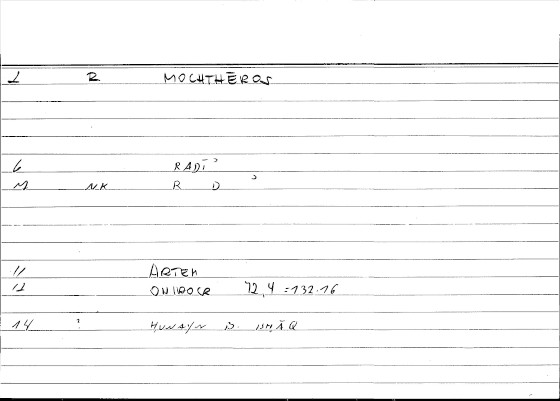 1 R MOCHTHĒROS
6 RADĪʾ
M NK R D ʾ
11 ARTEM
12 ONIROCR 72,4 = 132.16
14 : ḤUNAYN B. ISḤĀQ